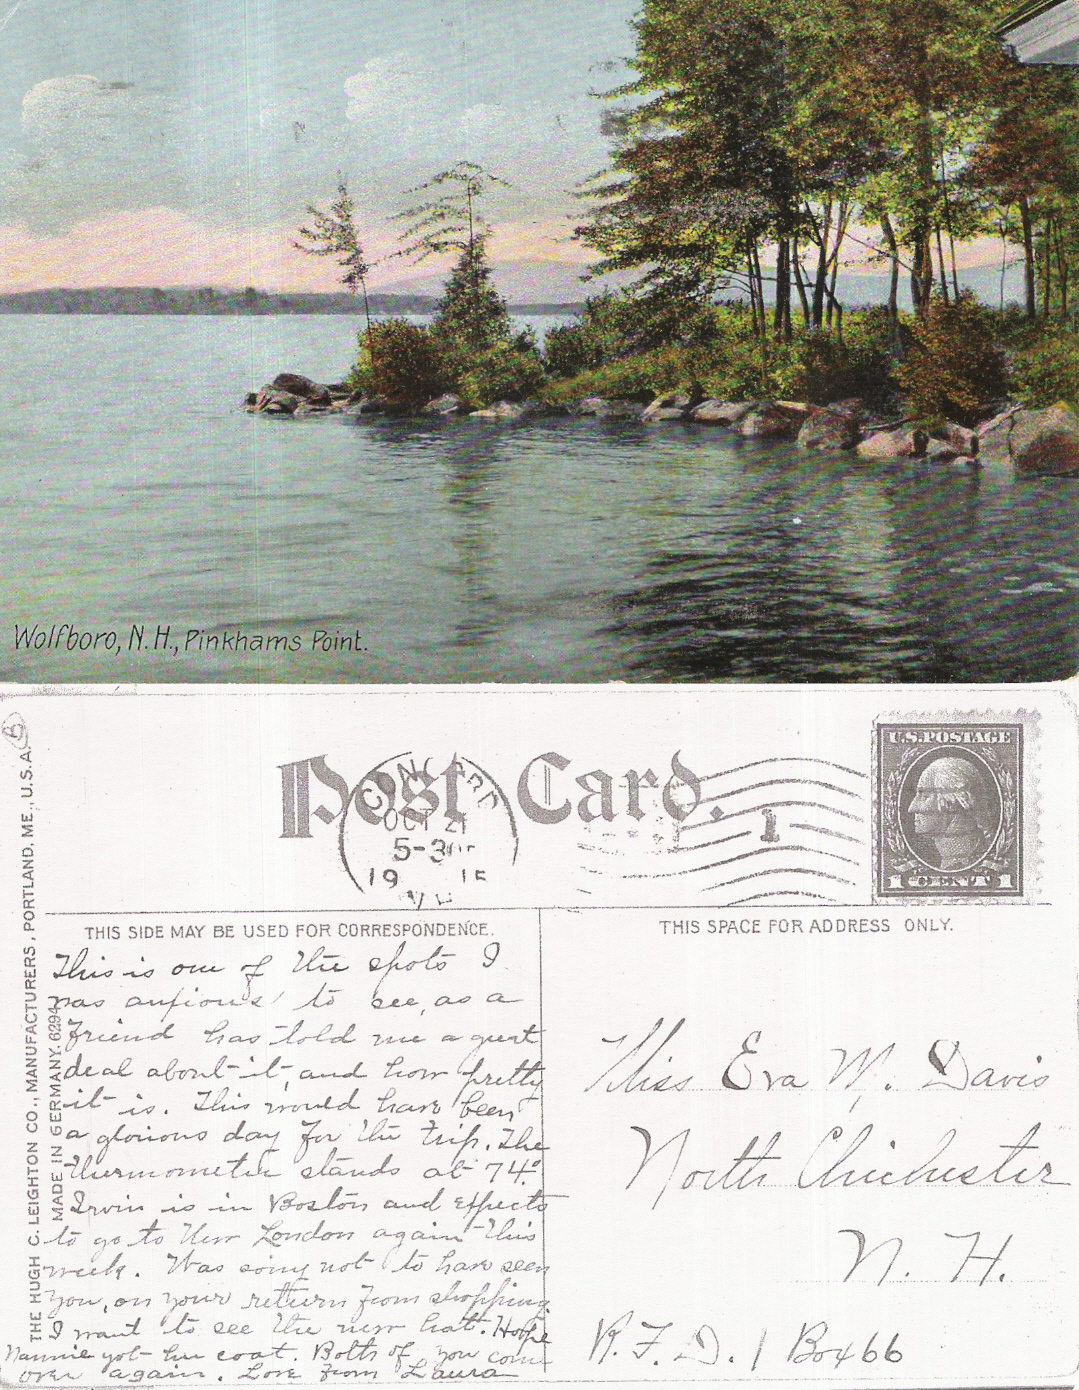 Wolfboro, N. H., Pinkhams Point.
B
THE HUGH C. LEIGHTON CO., MANUFACTURERS, PORTLAND, ME., U.S.A.
MADE IN GERMANY. 6294
Post Card.
CONCORD
OCT 21
5-30
19 15
1
U.S. POSTAGE
1 CENT 1
THIS SIDE MAY BE USED FOR CORRESPONDENCE.
THIS SPACE FOR ADDRESS ONLY.
This is one of the spots I
was anxious to see, as a
friend has told me a great
deal about it, and how pretty
it is. This would have been
a glorious day for the trip. The
thermometer stands at 74°.
Irvin is in Boston and expects
to go to New London again this
week. Was sorry not to have seen
you, on your return from shopping.
I want to see the new hat. Hope
Nannie got her coat. Both of you come
over again. Love from Laura
Miss Eva M. Davis
North Chichester
N. H.
R. F. D. 1 Box 66